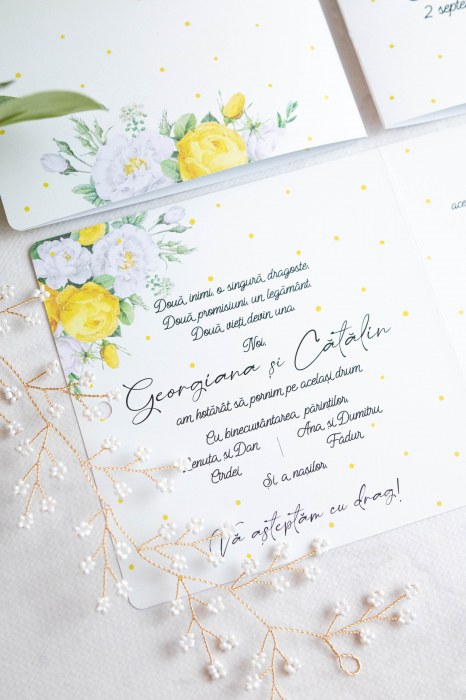 2 septe
ace
Două inimi, o singură dragoste.
Două promisiuni, un legământ.
Două vieți devin una.
Noi,
Georgiana și Cătălin
am hotărât să pornim pe același drum
Cu binecuvântarea părinților,
enuta și Dan | Ana și Dumitru
Ordei Fădur
Și a nașilor,
Vă așteptăm cu drag!